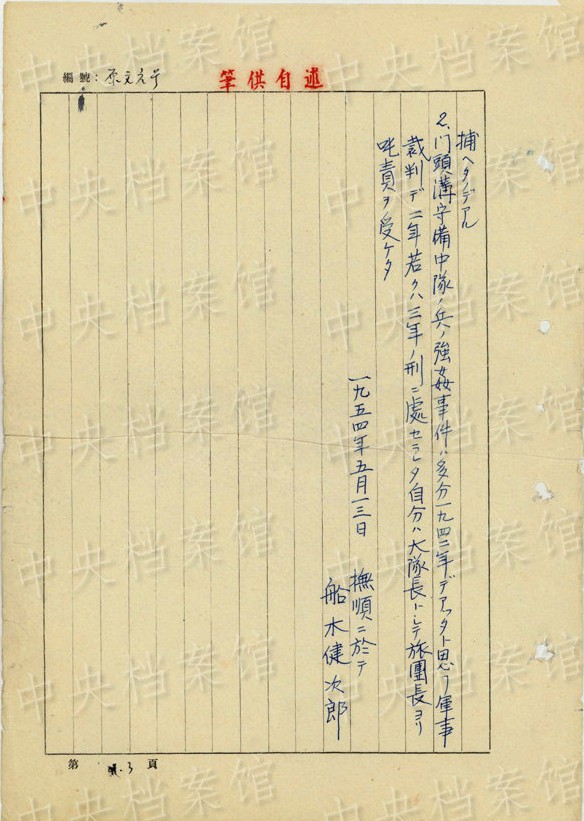 述自供筆
編號：
捕ヘタノデアル
2、門頭溝守備中隊ノ兵ノ強姦事件ハ多分一九四二年デアッタト思フ軍事
裁判デ二年若クハ三年ノ刑ニ處セラレタ自分ハ大隊長トシテ旅團長ヨリ
叱責ヲ受ケタ
一九五四年五月一三日
撫順ニ於テ
船木健次郎
第 3 頁
中央档案馆